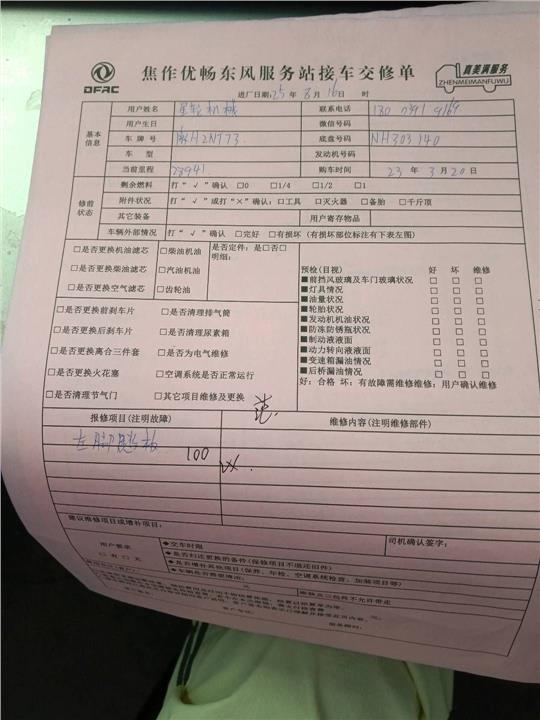 DFAC 焦作优畅东风服务站接车交修单 真美满服务
ZHENMEIMANFUWU
进厂日期:25 年 8 月 16 日 时
基本信息
用户姓名 联系电话
用户生日 微信号码
车 牌 号 H2N773 底盘号码 NH303140
车 型 发动机号码
当前里程 购车时间 23 年 3 月 20 日
修前状态
剩余燃料 打“√”确认 □0 □1/4 □1/2 □1
附件状况 打“√”或打“×”确认:□工具 □灭火器 □备胎 □千斤顶
其它装备 用户寄存物品
车辆外部情况 打“√”确认 □完好 □有损坏 (有损坏部位标注有下表左图)
□是否更换机油滤芯 □柴油机油 是否定件:是□否□
明细:
□是否更换柴油滤芯 □汽油机油
□是否更换空气滤芯 □齿轮油
预检(目视) 好 坏 维修
■前挡风玻璃及车门玻璃状况 □ □ □
■灯具情况 □ □ □
■油量状况 □ □ □
■轮胎状况 □ □ □
■发动机机油状况 □ □ □
■防冻防锈瓶状况 □ □ □
■制动液液面 □ □ □
■动力转向液液面 □ □ □
■变速箱漏油情况 □ □ □
■后桥漏油情况 □ □ □
好:合格 坏:有故障需维修维修:用户确认维修
□是否更换前刹车片 □是否清理排气筒
□是否更换后刹车片 □是否清理尿素箱
□是否更换离合三件套 □是否为电气维修
□是否更换火花塞 □空调系统是否正常运行
□是否清理节气门 □其它项目维修及更换
报修项目(注明故障) 维修内容(注明维修部件)
左脚踏板
100
建议维修项目或增补项目:
用户要求
□有 □无
◆交车时限 司机确认签字:
◆是否归还更换的备件(保修项目不退还旧件)
◆是否增补其他项目(保养、年检、空调系统检查、加装项目等)
◆车辆是否需要清洗: